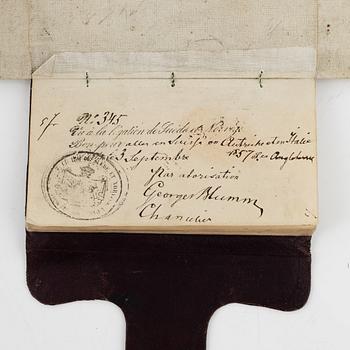 57.
No 345
Vu à la légation de Suède et Norvège
Bon pour aller en Suisse en Autriche et en Italie
le 3 Septembre 1857
Par autorisation
Georges Blumm
Chancelier